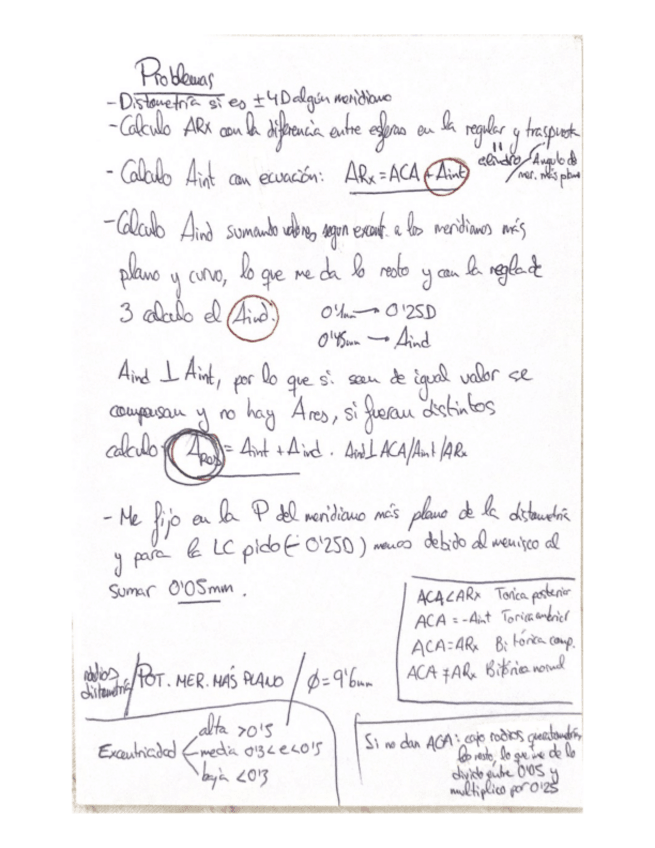 Problemas
- Distometría si es ±4D algún meridiano
- Calculo ARx con la diferencia entre esferas en la regular y traspuesta
- Calculo Aint con ecuación: ARx = ACA + Aint
cilindro / Ángulo de
mer. más plano
- Calculo Aind sumando valores según excent. a los meridianos más
plano y curvo, lo que me da lo resto y con la regla de
3 calculo el Aind.
0'1mm → 0'25D
0'45mm → Aind
Aind ⊥ Aint, por lo que si sean de igual valor se
compensan y no hay Ares, si fueran distintos
calculo: Ares = Aint + Aind. Aind ⊥ ACA/Aint/ARx
- Me fijo en la P del meridiano más plano de la distometría
y para la LC pido (-0'25D) menos debido al menisco al
sumar 0'05mm.
ACA < ARx Torica posterior
ACA = -Aint Torica anterior
ACA = ARx Bitórica comp.
ACA ≠ ARx Bitórica normal
radios
distometría / POT. MER. MÁS PLANO / ϕ = 9'6mm
Excentricidad
alta >0'5
media 0'3<e<0'5
baja <0'3
Si no dan ACA: cojo radios queratometría,
los resto, lo que me da lo
divido entre 0'05 y
multiplico por 0'25